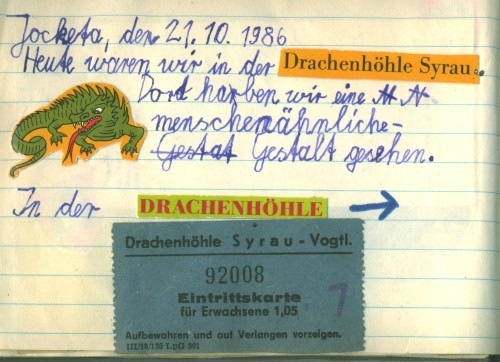 Jocketa, den 21.10.1986
Heute waren wir in der Drachenhöhle Syrau.
Dort harben wir eine
menschenähnliche-
Gestat Gestalt gesehen.
In der DRACHENHÖHLE →
Drachenhöhle Syrau - Vogtl.
92008
Eintrittskarte
für Erwachsene 1,05
7
Aufbewahren und auf Verlangen vorzeigen.